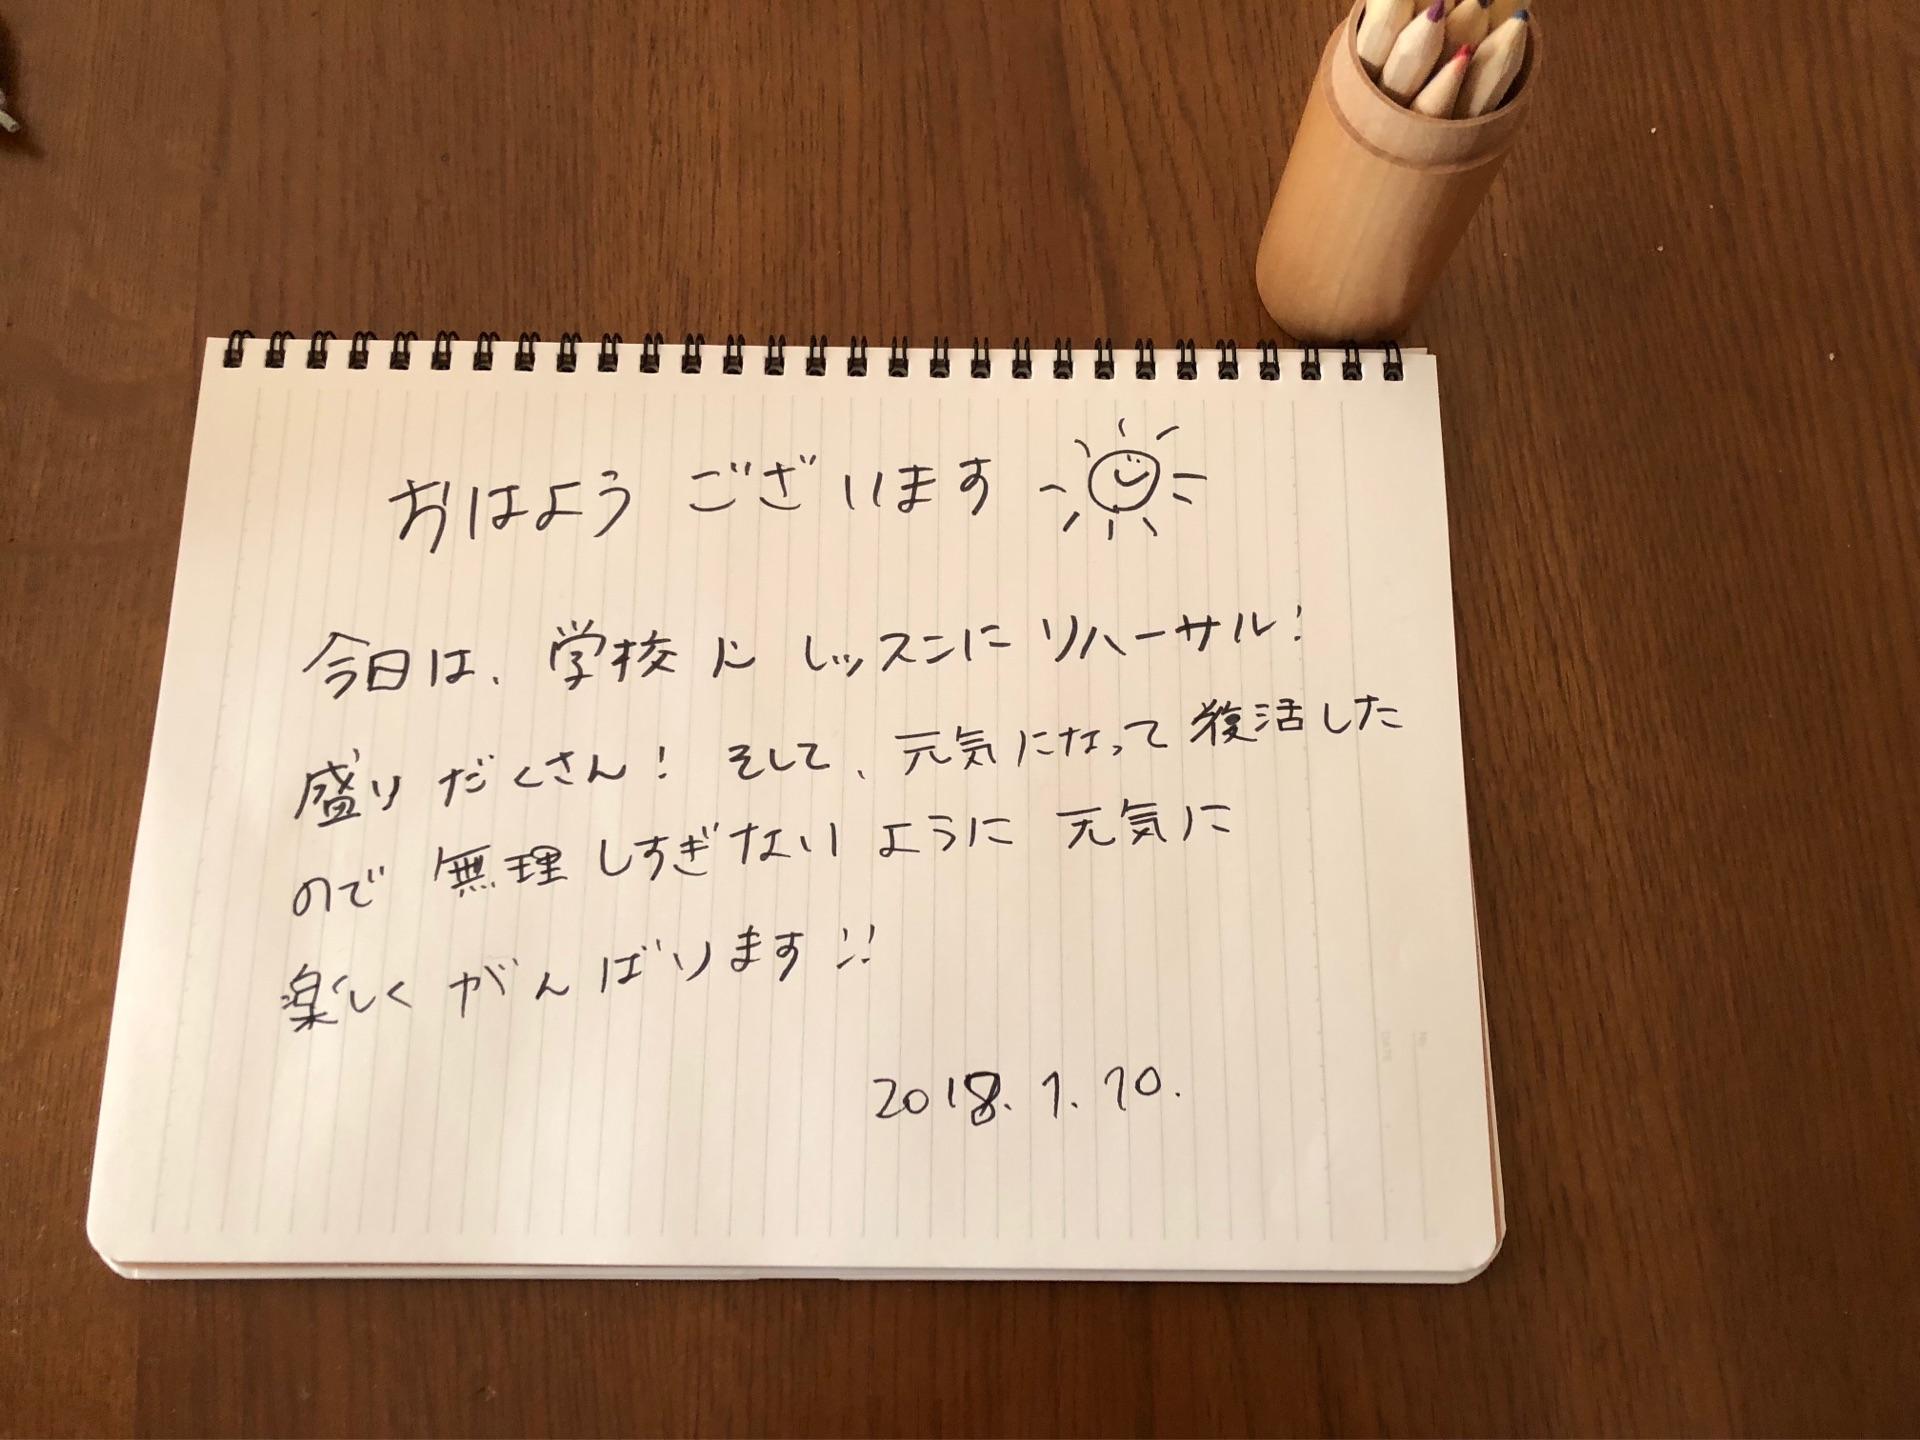 おはようございます
今日は、学校に レッスンに リハーサル!
盛りだくさん! そして、元気になって復活した
ので 無理しすぎないように 元気に
楽しく がんばります!!
2018.1.10.